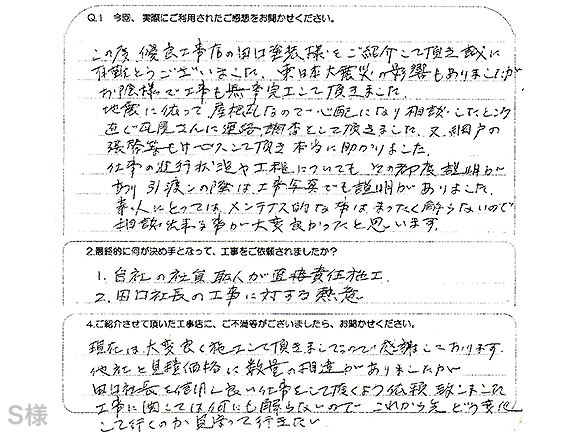 Q.1 今回、実際にご利用されたご感想をお聞かせください。
この度 優良工事店の田口塗装様をご紹介して頂き誠に
有難とうございました。東日本大震災の影響もありましたが
お陰様で工事も無事完工して頂きました。
地震に依って屋根瓦なので心配になり相談したところ
直ぐ瓦屋さんに連絡調査をして頂きました。又、網戸の
張替等もサービスして頂き本当に助かりました。
仕事の進行状況や工程についても その都度説明が
あり 引渡しの際は工事写真でも説明がありました。
素人にとってはメンテナス的な事はまったく解らないので
相談出来る事が大変良かったと思います。
2.最終的に何が決め手となって、工事をご依頼されましたか?
1. 自社の社員職人が直接責任施工
2. 田口社長の工事に対する熱意
4.ご紹介させて頂いた工事店に、ご不満等がございましたら、お聞かせください。
現在は大変良く施工して頂きましたので感謝しております。
他社と見積価格に数量の相違がありましたが
田口社長を信用し良い仕事をして頂くよう依頼致しました
工事に関しては何にも解らないので これから先 どう変化
して行くのか見守って行きたい
S様